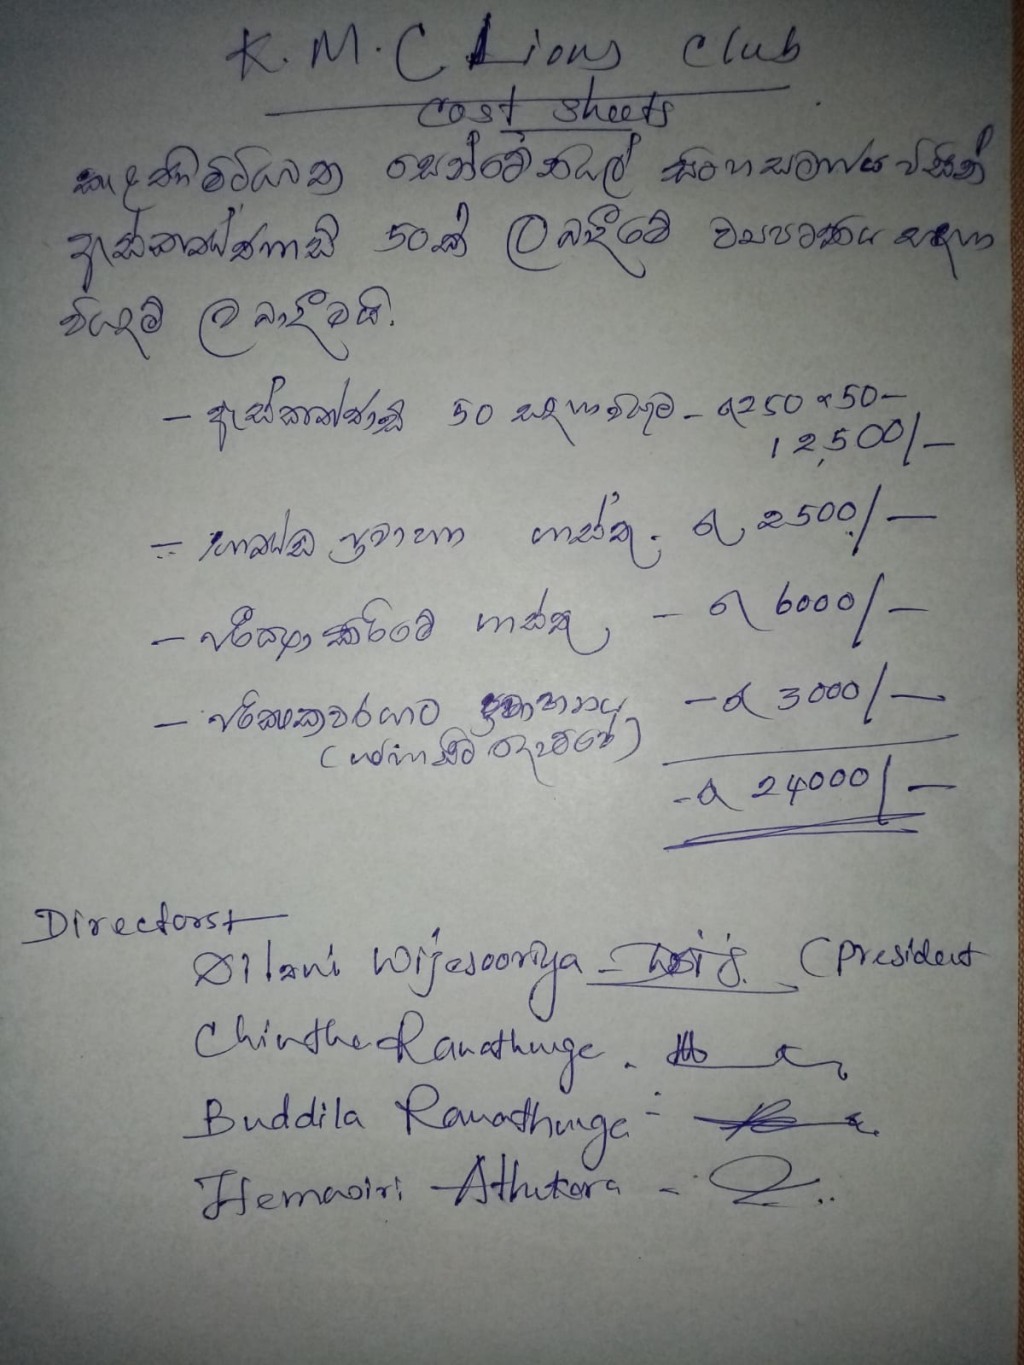 K. M. C Lions Club
cost sheets
සෙන්ටේනියල් සිංහ සමාජය විසින්
ඇස් කණ්ණාඩි 50ක් ලබාදීමේ ව්‍යපෘතිය සඳහා
වියදම් ලබාදීමයි.
- ඇස් කණ්ණාඩි 50 සඳහා වියදම - රු 250 x 50 -
12,500/-
- භාණ්ඩ ප්‍රවාහන ගාස්තු. රු 2500/-
- පරීක්ෂා කිරීමේ ගාස්තු - රු 6000/-
- පරීක්ෂකවරයාට ප්‍රවාහනය - රු 3000/-
- රු 24000/-
Directors
Dilani Wijesooriya - (President
Chintha Ranathunge -
Buddila Ranathunga -
Hemasiri Athukora -